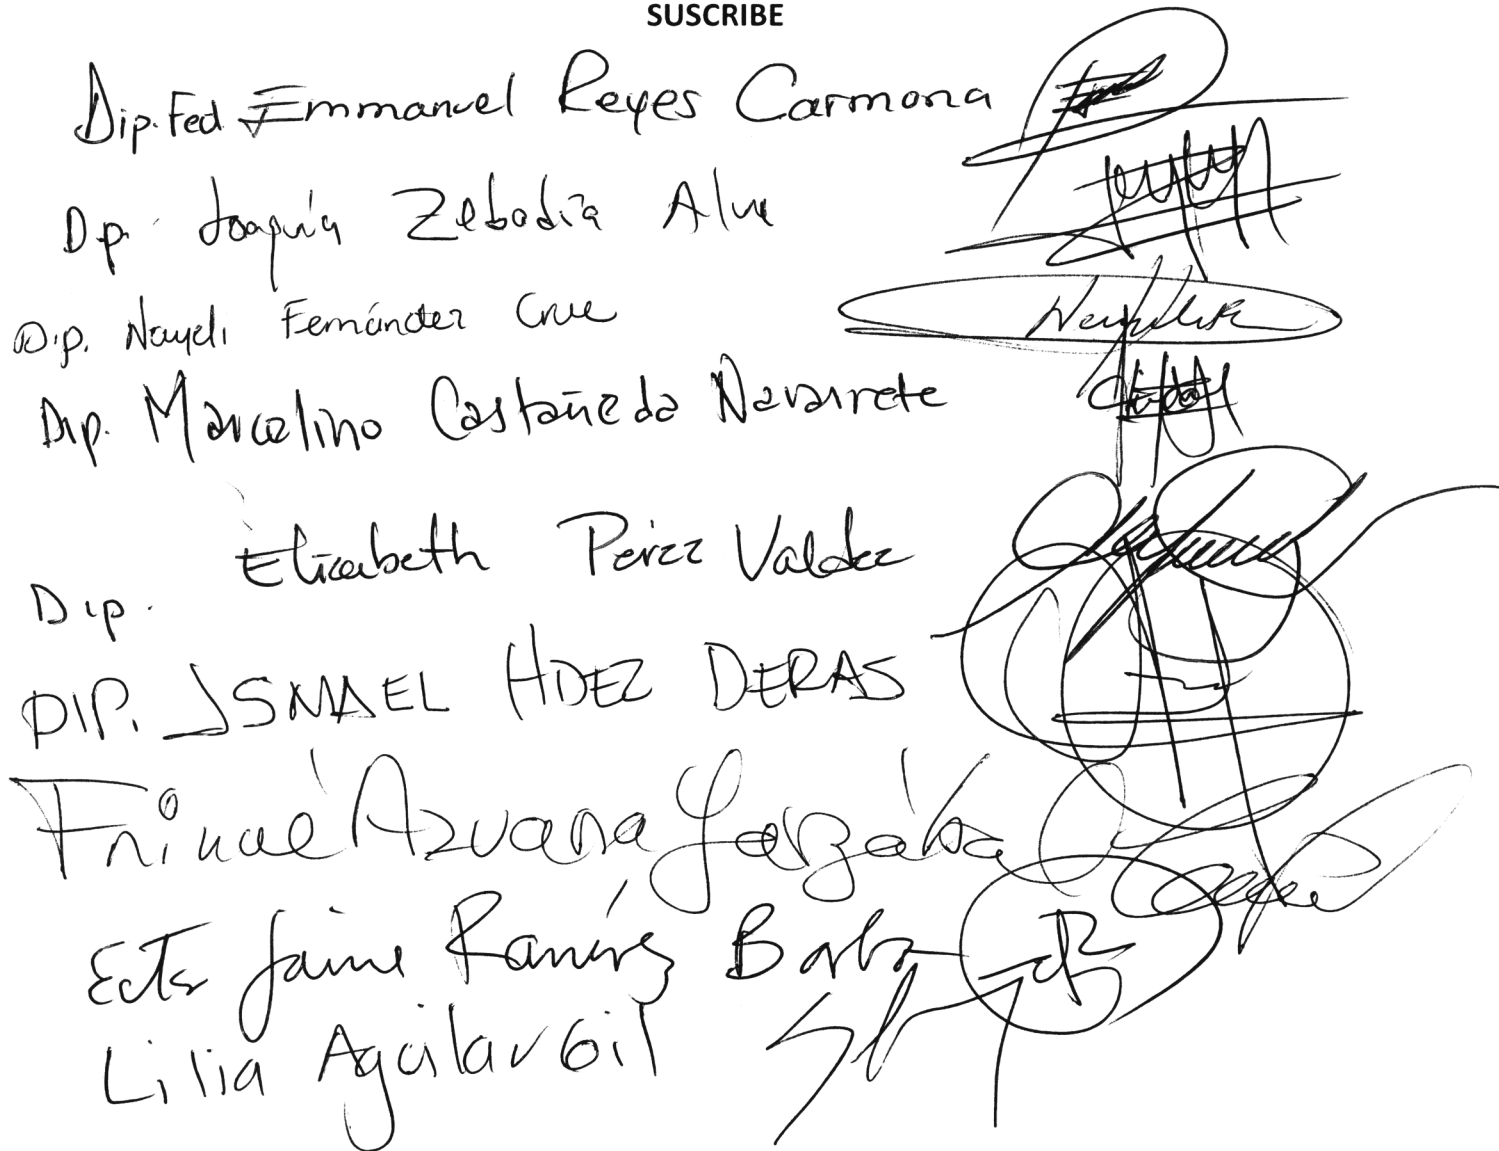 SUSCRIBE
Dip. Fed Emmanuel Reyes Carmona
Dip. Joaquín Zebadúa Alva
Dip. Nayeli Fernández Cruz
Dip. Marcelino Castañeda Navarrete
Elizabeth Pérez Valdez
Dip.
DIP. ISMAEL HDEZ DERAS
Azuara Yarzábal
Jaime Ramírez Barba
Lilia Aguilar Gil